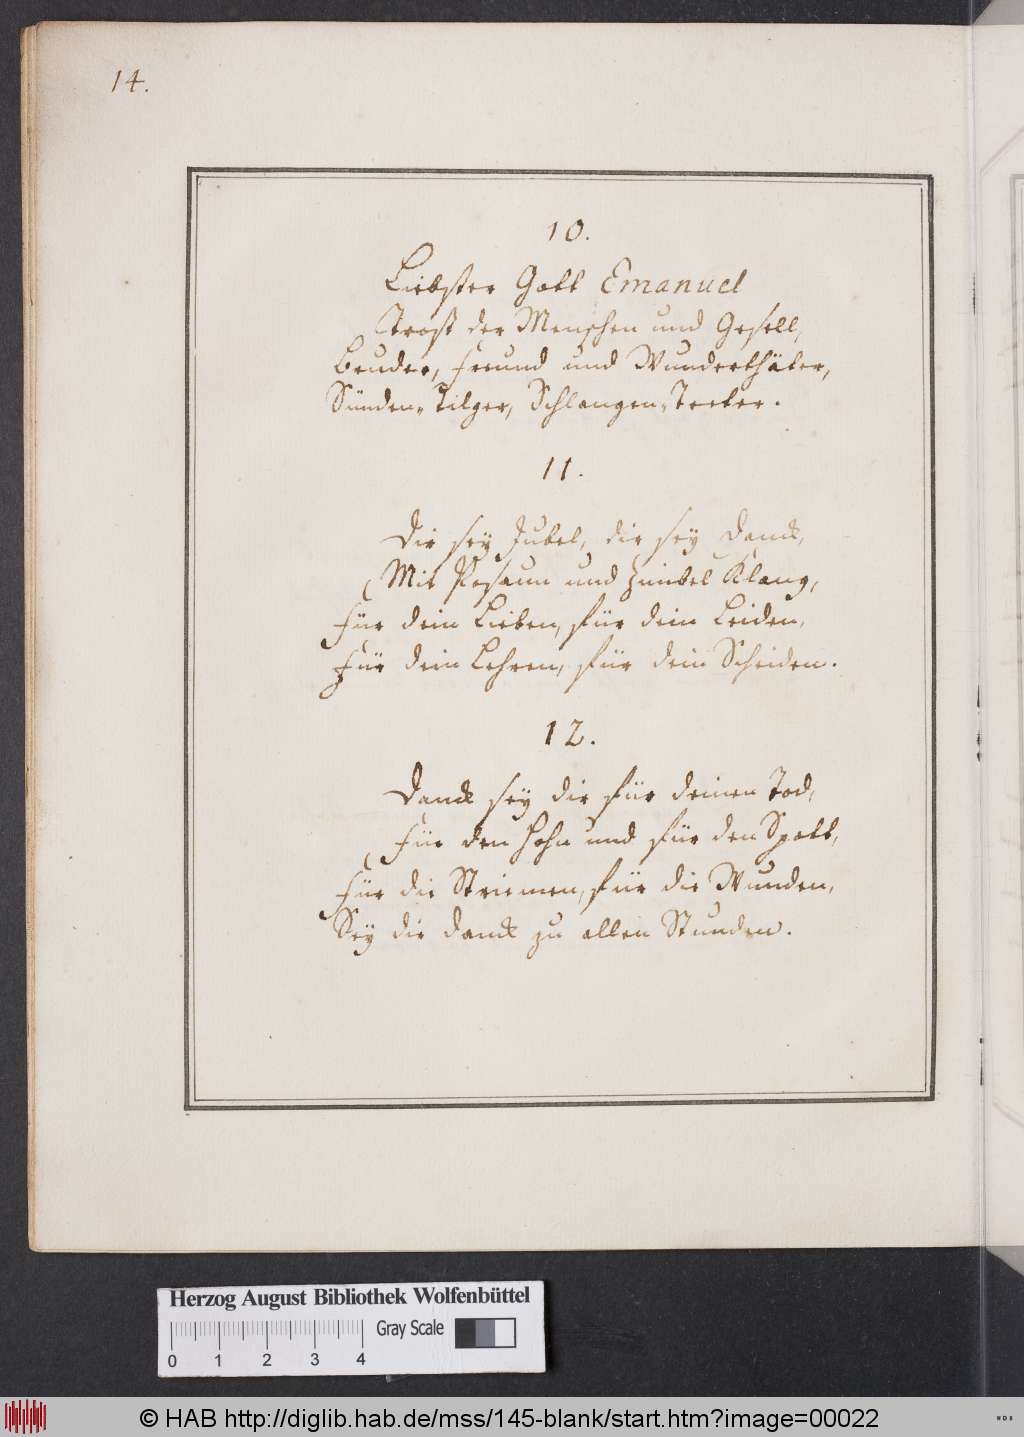 14.
10.
Liebster Gott Emanuel
Trost der Menschen und Gesell,
Bruder, Freund und Wunderthäter,
Sünden-Tilger, Schlangen-Treter.
11.
Dir sey Jubel, dir sey Danck,
Mit Posaun und Zimbel Klang,
Für dein Lieben, für dein Leiden,
Für dein Lehren, für dein Scheiden.
12.
Danck sey dir für deinen Tod,
Für den Hohn und für den Spott,
Für die Striemen, für die Wunden,
Sey dir Danck zu allen Stunden.
Herzog August Bibliothek Wolfenbüttel
Gray Scale
0 1 2 3 4
© HAB http://diglib.hab.de/mss/145-blank/start.htm?image=00022